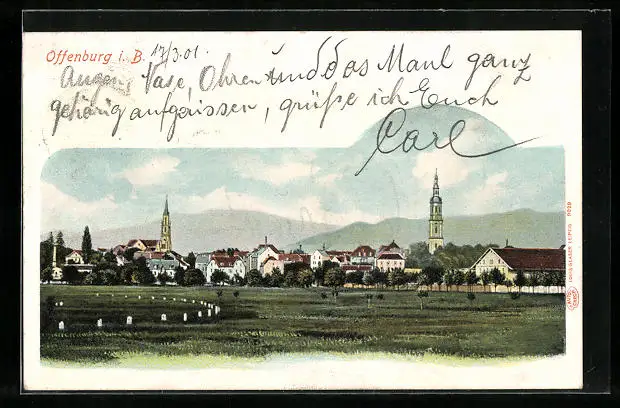 Offenburg i. B. 17/3.01.
Augen, Nase, Ohren und das Maul ganz
gehörig aufgerissen, grüße ich Euch
Carl
LOUIS GLASER LEIPZIG